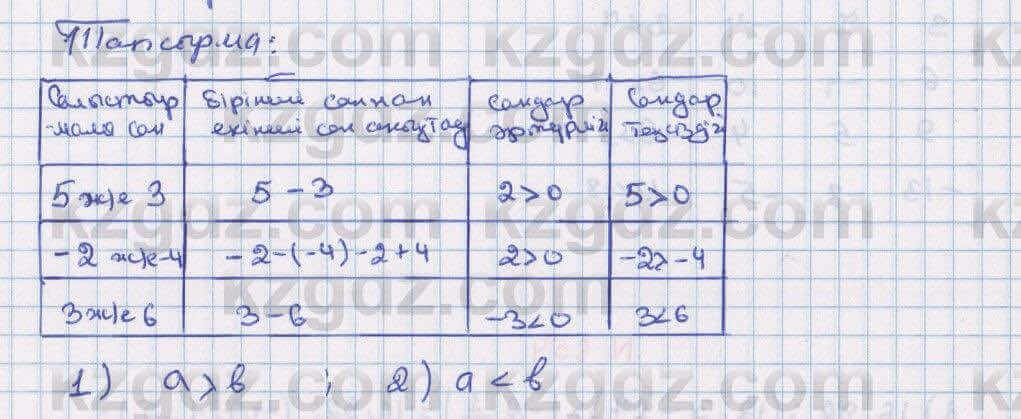 Тапсырма:
Салыстыр Бірінші саннан Сандар Сандар
мала сан екінші сан азайту
5 ж/е 3 5 - 3 2 > 0 5 > 0
- 2 ж/е -4 - 2 - (-4) - 2 + 4 2 > 0 -2 > -4
3 ж/е 6 3 - 6 -3 < 0 3 < 6
1) a > в ; 2) a < в
kzgdz.com